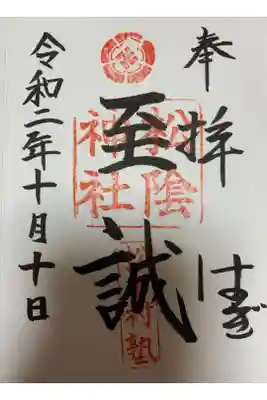 奉拝
はぎ
至誠
松陰神社
松下村塾
令和二年十月十日